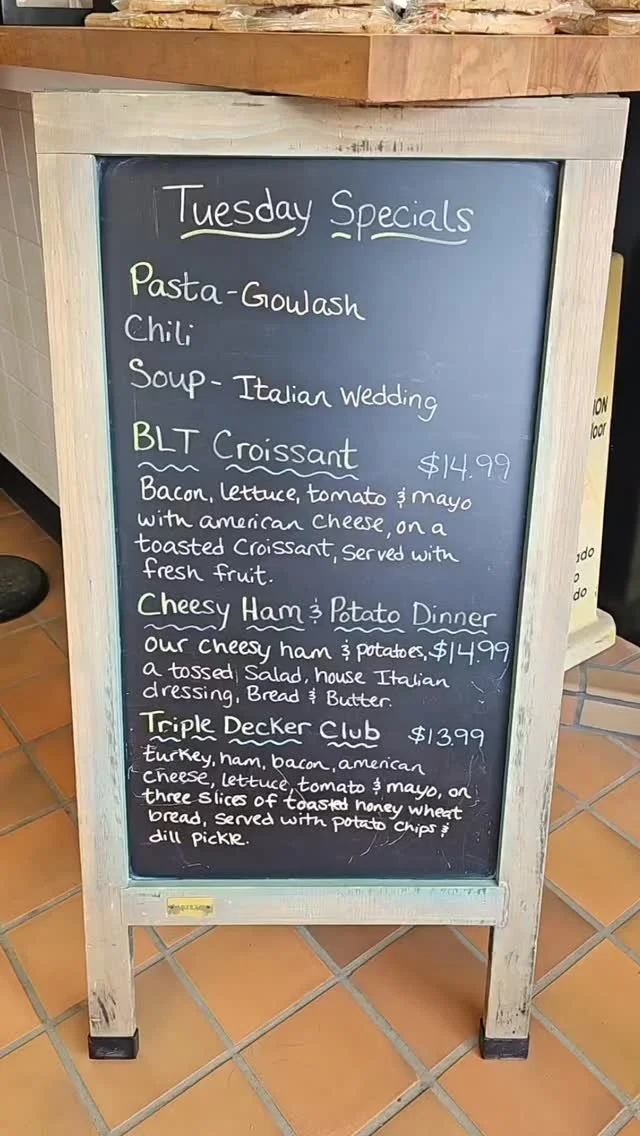 Tuesday Specials
Pasta-Gowlash
Chili
Soup - Italian Wedding
BLT Croissant $14.99
Bacon, lettuce, tomato & mayo
with american cheese, on a
toasted Croissant, served with
fresh fruit.
Cheesy Ham & Potato Dinner
our cheesy ham & potatoes, $14.99
a tossed Salad, house Italian
dressing, Bread & Butter.
Triple Decker Club $13.99
turkey, ham, bacon, american
cheese, lettuce, tomato & mayo, on
three slices of toasted honey wheat
bread, served with potato chips &
dill pickle.
ON
oor
ado
o
do